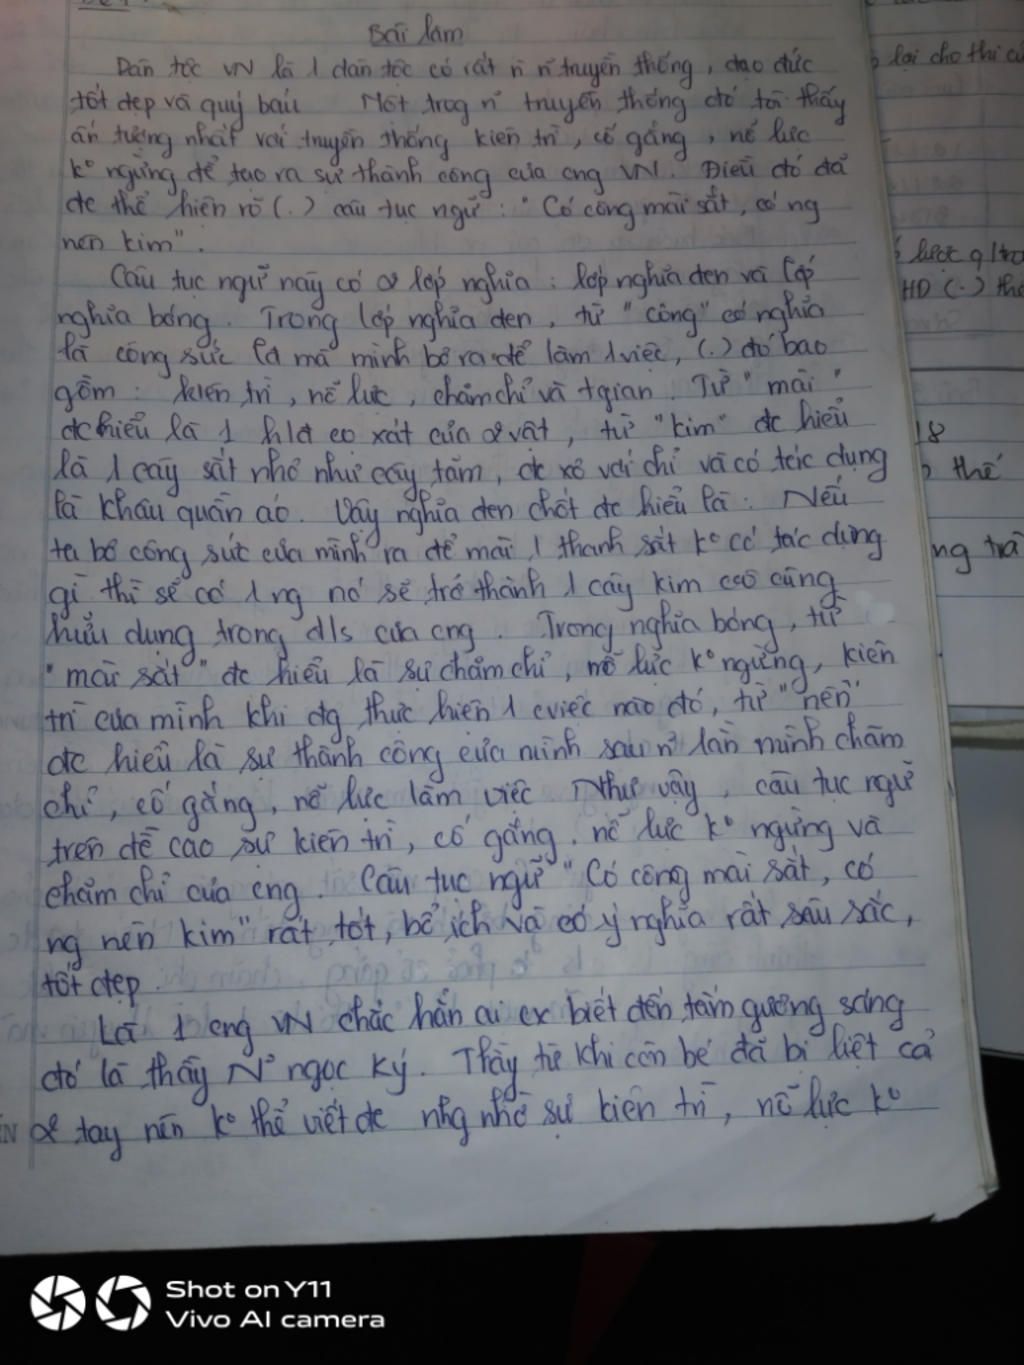 Bài làm
Dân tộc VN là 1 dân tộc có rất n n truyền thống, đạo đức
tốt đẹp và quý báu Một trog n truyền thống đó tôi thấy
ấn tượng nhất với truyền thống kiên trì, cố gắng, nỗ lực
k° ngừng để tạo ra sự thành công của cng VN. Điều đó đã
đc thể hiện rõ (.) câu tục ngữ: "Có công mài sắt, có ng
nên kim".
Câu tục ngữ này có 2 lớp nghĩa: lớp nghĩa đen và lớp
nghĩa bóng. Trong lớp nghĩa đen, từ "công" có nghĩa
là công sức là mà mình bỏ ra để làm 1 việc, (.) đó bao
gồm: kiên trì, nỗ lực, chăm chỉ và tgian. Từ "mài"
đc hiểu là 1 hđ cọ xát của 2 vật, từ "kim" đc hiểu
là 1 cây sắt nhỏ như cây tăm, đc xỏ với chỉ và có tác dụng
là khâu quần áo. Vậy nghĩa đen chốt đc hiểu là: Nếu
ta bỏ công sức của mình ra để mài 1 thanh sắt k° có tác dụng
gì thì sẽ có 1 ng nó sẽ trở thành 1 cây kim vô cùng
hữu dụng trong đ/s của cng. Trong nghĩa bóng, từ
"mài sắt" đc hiểu là sự chăm chỉ, nỗ lực k° ngừng, kiên
trì của mình khi đg thực hiện 1 cviệc nào đó, từ "nên"
đc hiểu là sự thành công của mình sau n lần mình chăm
chỉ, cố gắng, nỗ lực làm việc. Như vậy, câu tục ngữ
trên đề cao sự kiên trì, cố gắng, nỗ lực k° ngừng và
chăm chỉ của cng. Câu tục ngữ "Có công mài sắt, có
ng nên kim" rất tốt, bổ ích và có ý nghĩa rất sâu sắc,
tốt đẹp.
Là 1 cng VN chắc hẳn ai cx biết đến tấm gương sáng
đó là thầy N ngọc Ký. Thầy từ khi còn bé đã bị liệt cả
2 tay nên k° thể viết đc nhg nhờ sự kiên trì, nỗ lực k°
lại cho thi
18
thế
ng trà
Shot on Y11
Vivo AI camera